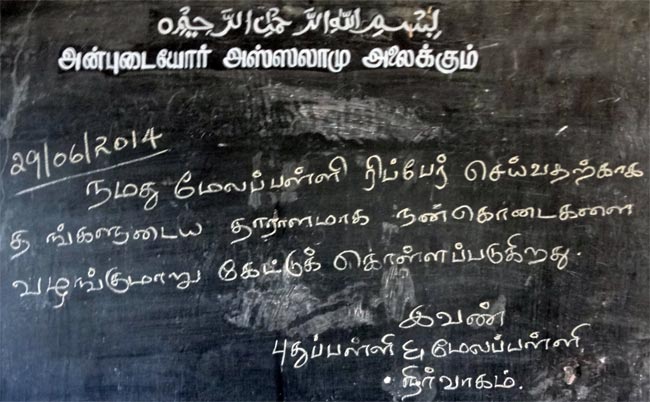 بسم الله الرحمن الرحيم
அன்புடையோர் அஸ்ஸலாமு அலைக்கும்
29/06/2014
நமது மேலப்பள்ளி ரிப்பேர் செய்வதற்காக
தங்களுடைய தாராளமாக நன்கொடைகளை
வழங்குமாறு கேட்டுக் கொள்ளப்படுகிறது.
இவண்
புதுப்பள்ளி & மேலப்பள்ளி
நிர்வாகம்.